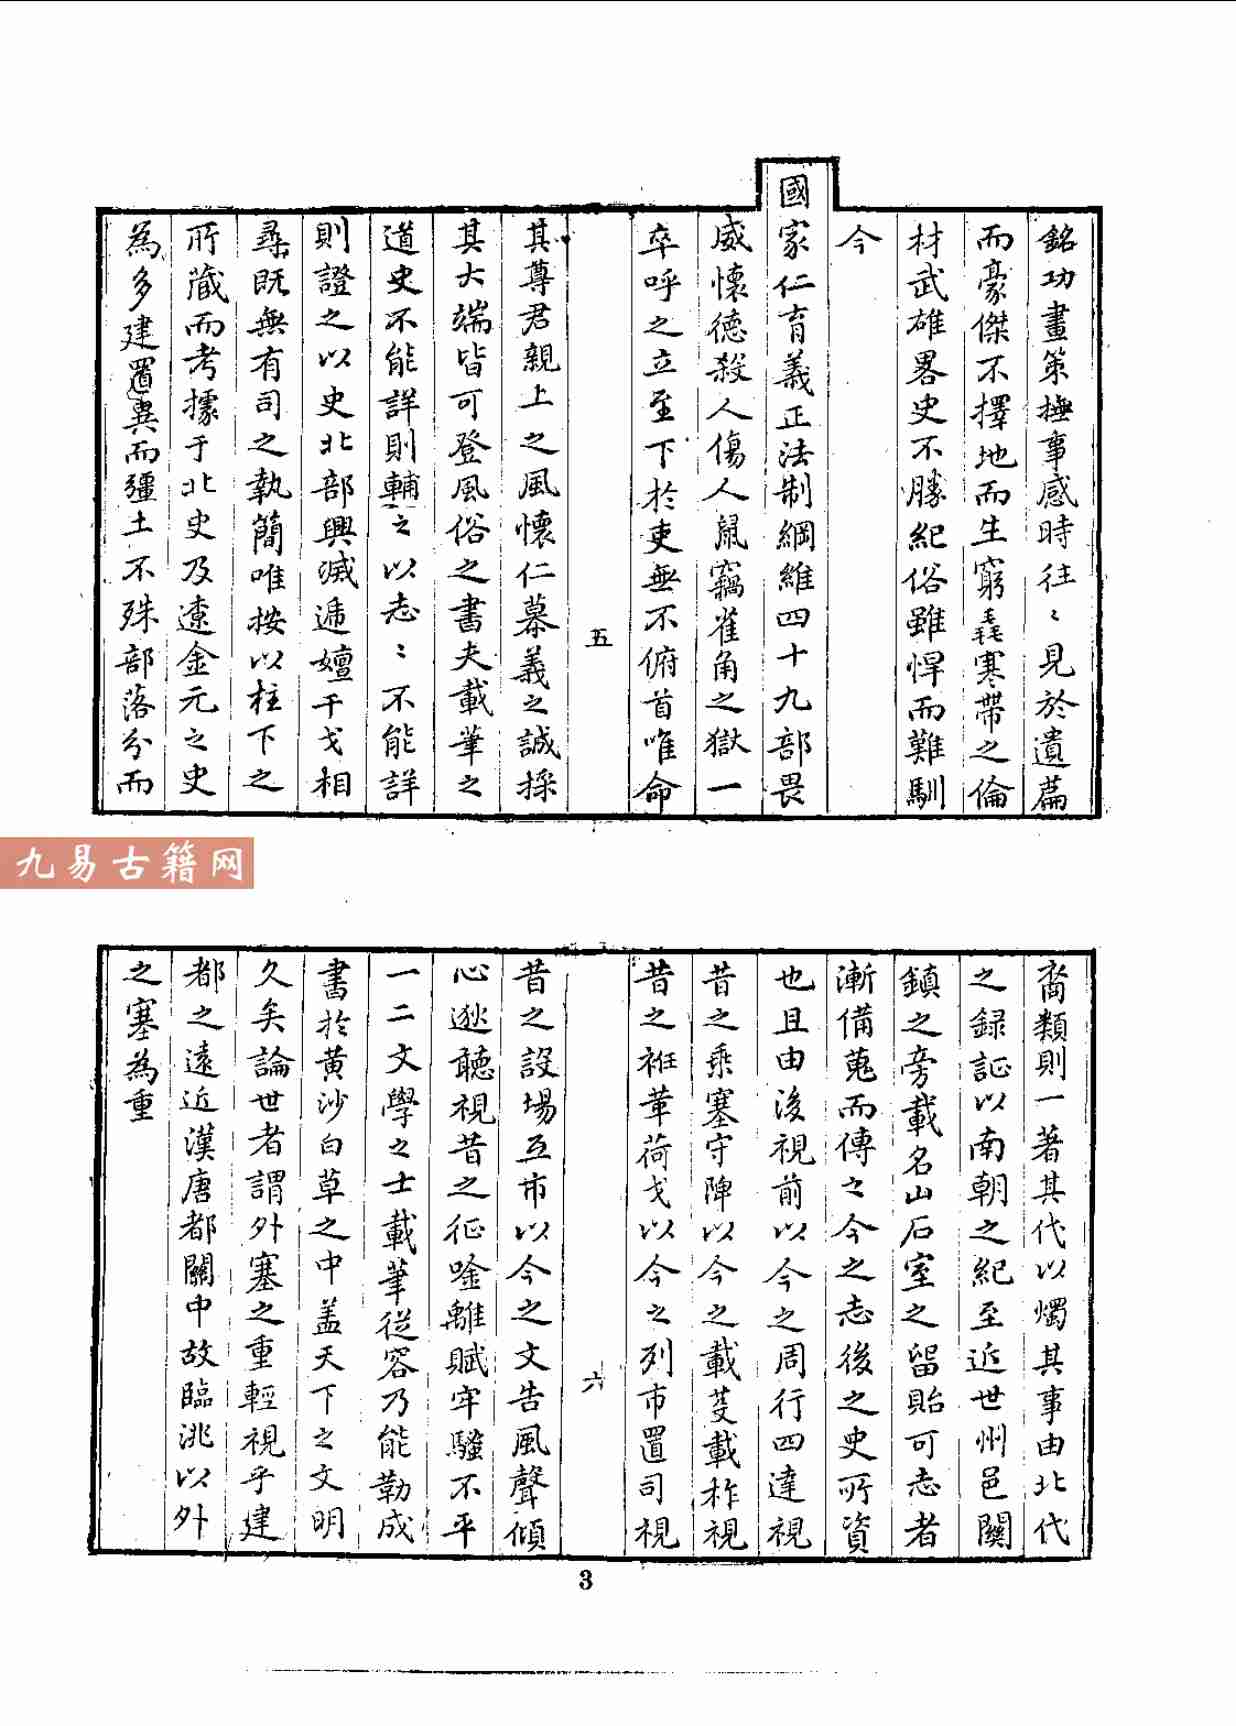 銘功畫策撫事感時往〻見於遺篇
而豪傑不擇地而生窮毳寒帶之倫
材武雄畧史不勝紀俗雖悍而難馴
今
國家仁育義正法制綱維四十九部畏
威懷德殺人傷人鼠竊雀角之獄一
卒呼之立至下於吏無不俯首唯命
五
其尊君親上之風懷仁慕義之誠採
其大端皆可登風俗之書夫載筆之
道史不能詳則輔之以志〻不能詳
則證之以史北部興滅遞嬗干戈相
尋既無有司之執簡唯按以柱下之
所藏而考據于北史及遼金元之史
為多建置異而疆土不殊部落分而
九易古籍网
裔類則一著其代以燭其事由北代
之録証以南朝之紀至近世州邑關
鎮之旁載名山石室之留貽可志者
漸備蒐而傳之今之志後之史所資
也且由後視前以今之周行四達視
昔之乘塞守陴以今之載芟載柞視
昔之袵革荷戈以今之列市置司視
六
昔之設場互市以今之文告風聲傾
心逖聽視昔之征唫離賦牢騷不平
一二文學之士載筆從容乃能勒成
書於黄沙白草之中盖天下之文明
久矣論世者謂外塞之重輕視乎建
都之遠近漢唐都關中故臨洮以外
之塞為重
3